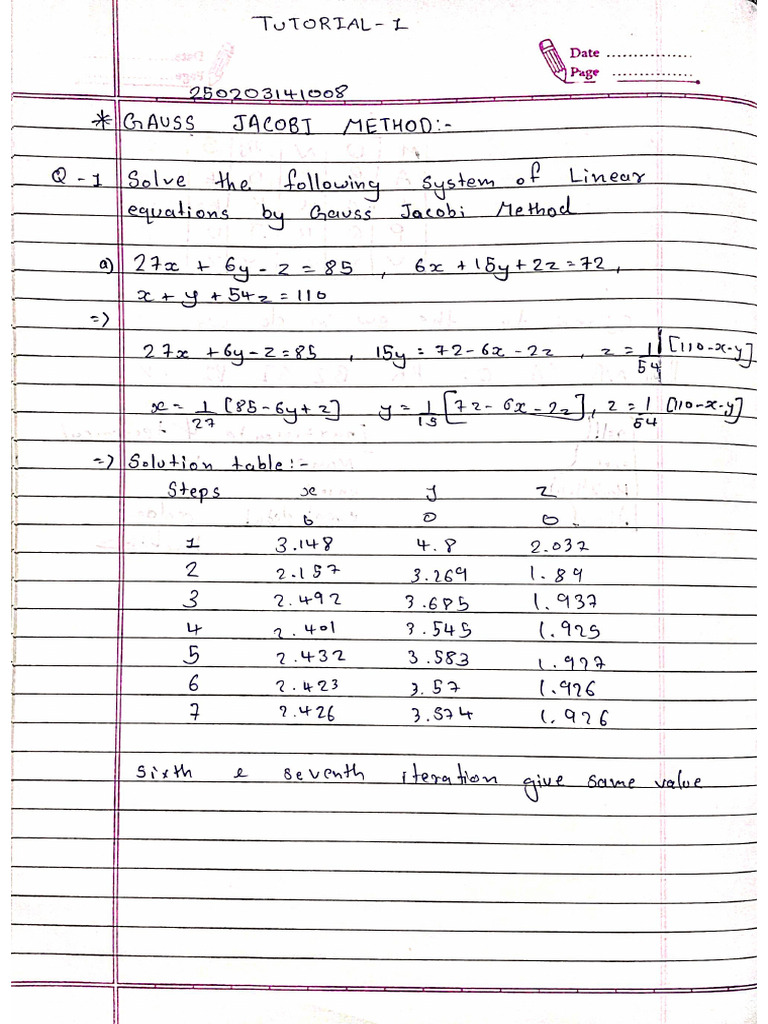 TUTORIAL-1
Date ..............
Page ..............
250203141008
* GAUSS JACOBI METHOD:-
Q-1 Solve the following system of Linear
equations by Gauss Jacobi Method
a) 27x + 6y - z = 85 , 6x + 15y + 2z = 72,
x + y + 54z = 110
=>
27x + 6y - z = 85 , 15y = 72 - 6x - 2z , z = 1/54 [110-x-y]
x = 1/27 [85-6y+z] y = 1/15 [72-6x-2z], z = 1/54 [110-x-y]
=> Solution table:-
Steps x y z
0 0 0
1 3.148 4.8 2.037
2 2.157 3.269 1.89
3 2.492 3.685 1.937
4 2.401 3.545 1.925
5 2.432 3.583 1.927
6 2.423 3.57 1.926
7 2.426 3.574 1.926
Sixth & seventh iteration give same value